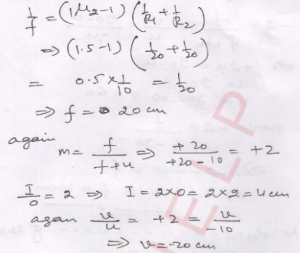 1/f = (¹μ₂-1) (1/R₁ + 1/R₂)
⇒ (1.5-1) (1/20 + 1/20)
= 0.5 × 1/10 = 1/20
⇒ f = 20 cm
again
m = f/(f+u) ⇒ +20/(+20-10) = +2
I/O = 2 ⇒ I = 2×0 = 2×2 = 4 cm
again v/u = +2 = v/-10
⇒ v = -20 cm
HELP